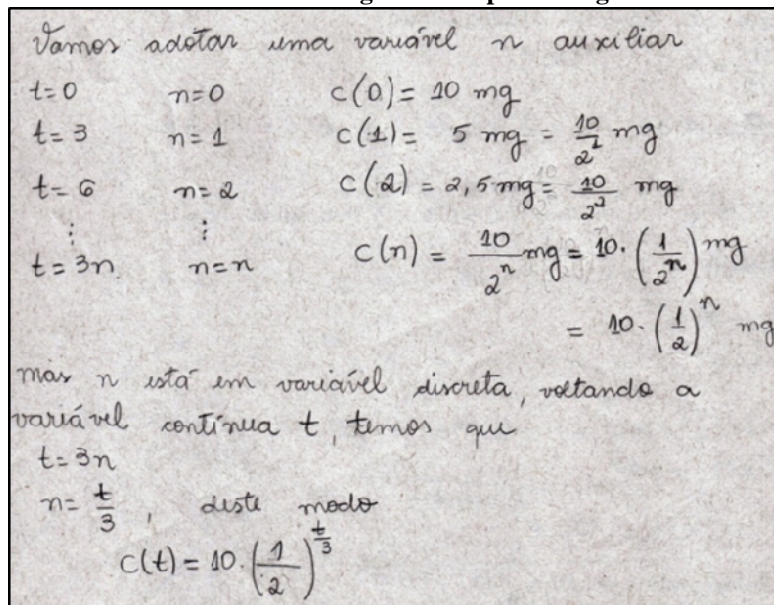 Vamos adotar uma variável n auxiliar
t=0 n=0 c(0)= 10 mg
t= 3 n= 1 c(1)= 5 mg = 10/2¹ mg
t= 6 n= 2 c(2) = 2,5 mg= 10/2² mg
⋮ ⋮
t= 3n n=n c(n) = 10/2ⁿ mg= 10·(1/2ⁿ) mg
= 10·(1/2)ⁿ mg
mas n está em variável discreta, voltando a
variável contínua t, temos que
t=3n
n= t/3, deste modo
c(t) = 10·(1/2)^(t/3)